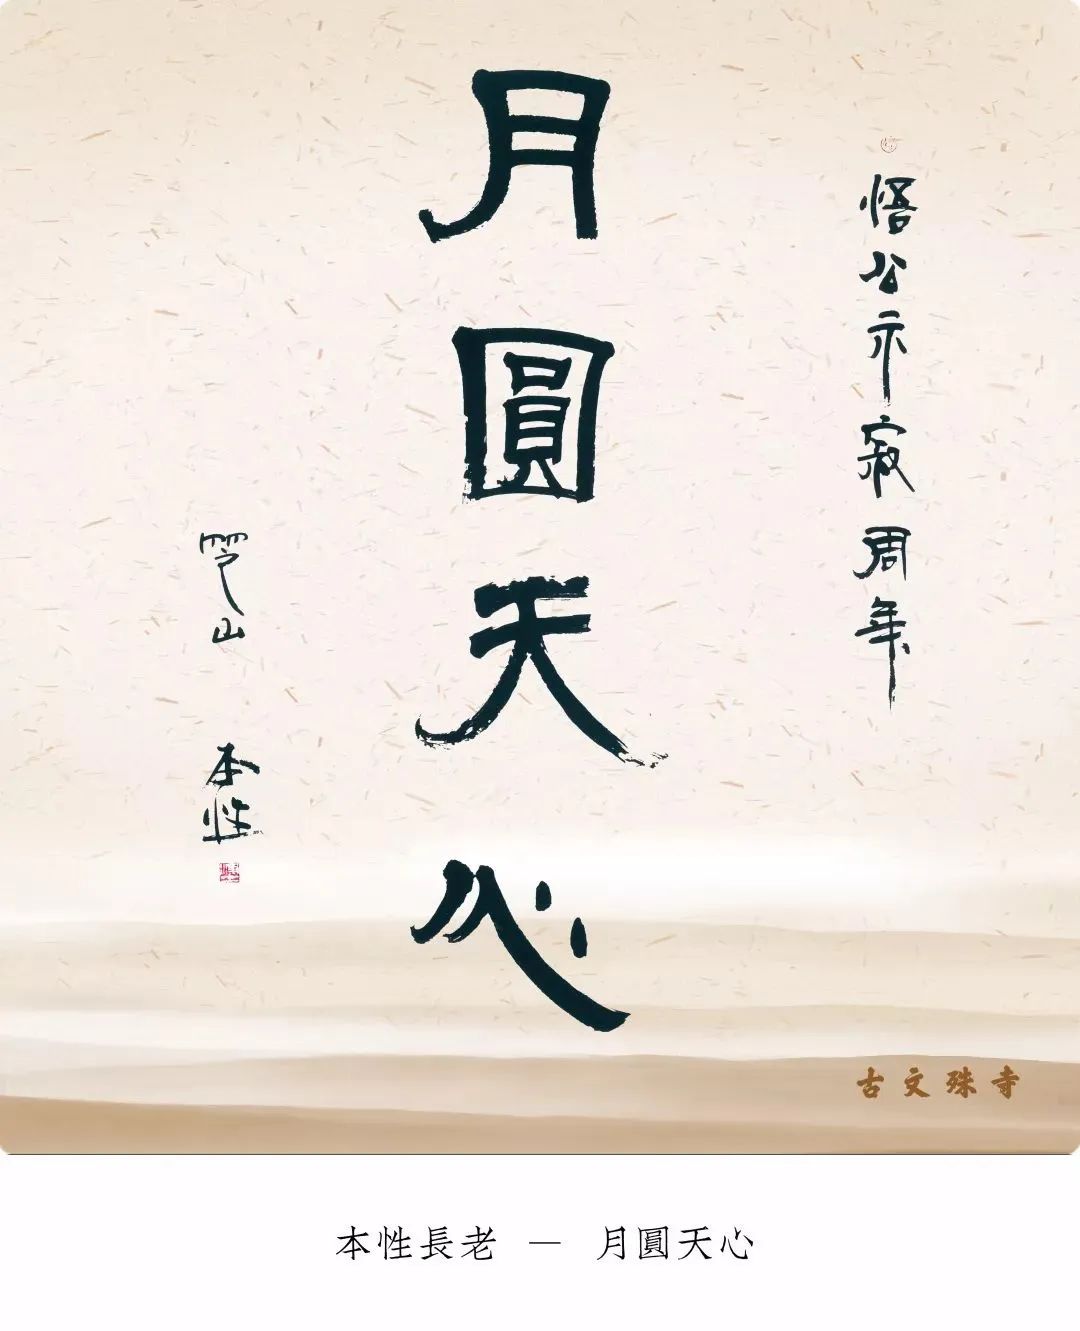 悟公示寂周年
月圓天心
山
本性
古文殊寺
本性長老 — 月圓天心